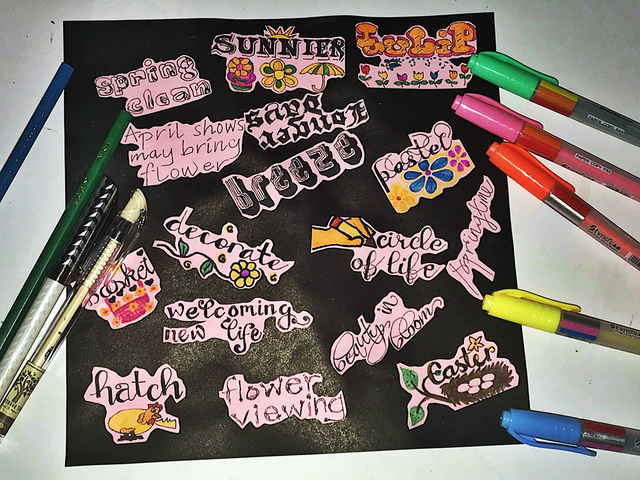 SUNNIER
TULIP
spring
clean
Longer
Days
April shows
may bring
flower
breeze
pastel
decorate
circle
of life
basket
welcoming
new life
beauty in
bloom
hatch
flower
viewing
Easter